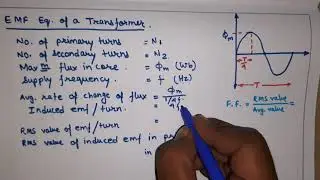 EMF Eq. of a Transformer.
No. of primary turns = N₁
No. of secondary turns = N₂
Max m flux in core = Φm (Wb)
Supply frequency = f (Hz)
Avg. rate of change of flux = Φm / 1/4f
Induced emf/turn. =
Rms value of emf/turn =
RMS value of induced emf in p
in
Φm
T/4
T
F.F. = RMS value / Avg. value =